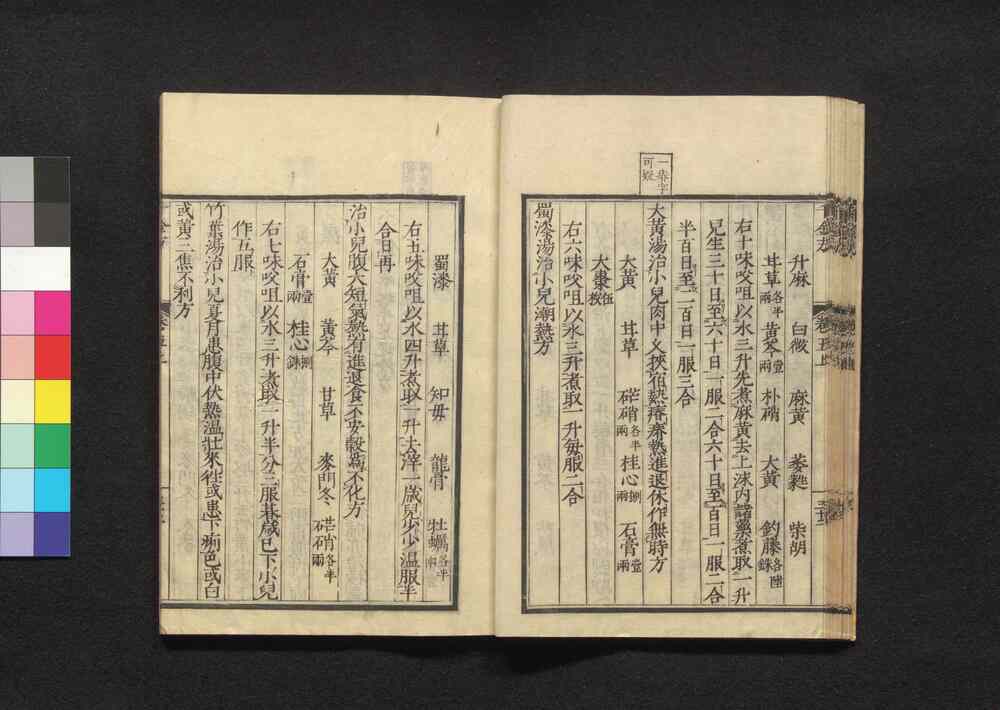 一卷字
可疑
升麻 白薇 麻黃 葳蕤 柴胡
甘草各半兩 黃芩壹兩 朴硝 大黃 鈎藤各陸銖
右十味㕮咀以水三升先煮麻黃去上沫內諸藥煮取一升
兒生三十日至六十日一服二合六十日至百日一服二合
半百日至二百日一服三合
大黃湯治小兒肉中久挾宿熱瘠瘦熱進退休作無時方
大黃 甘草 芒硝各半兩 桂心捌兩 石膏壹兩
大棗伍枚
右六味㕮咀以水三升煮取一升每服二合
蜀漆湯治小兒潮熱方
蜀漆 甘草 知母 龍骨 牡蠣各半兩
右五味㕮咀以水四升煮取一升去滓一歲兒少少溫服半
合日再
治小兒腹大短氣熱有進退食不安穀為不化方
大黃 黃芩 甘草 麥門冬 芒硝各半兩
石膏壹兩 桂心捌銖
右七味㕮咀以水三升煮取一升半分三服朞歲已下小兒
作五服
竹葉湯治小兒夏月患腹中伏熱溫壯來往或患下痢色或白
或黃三焦不利方